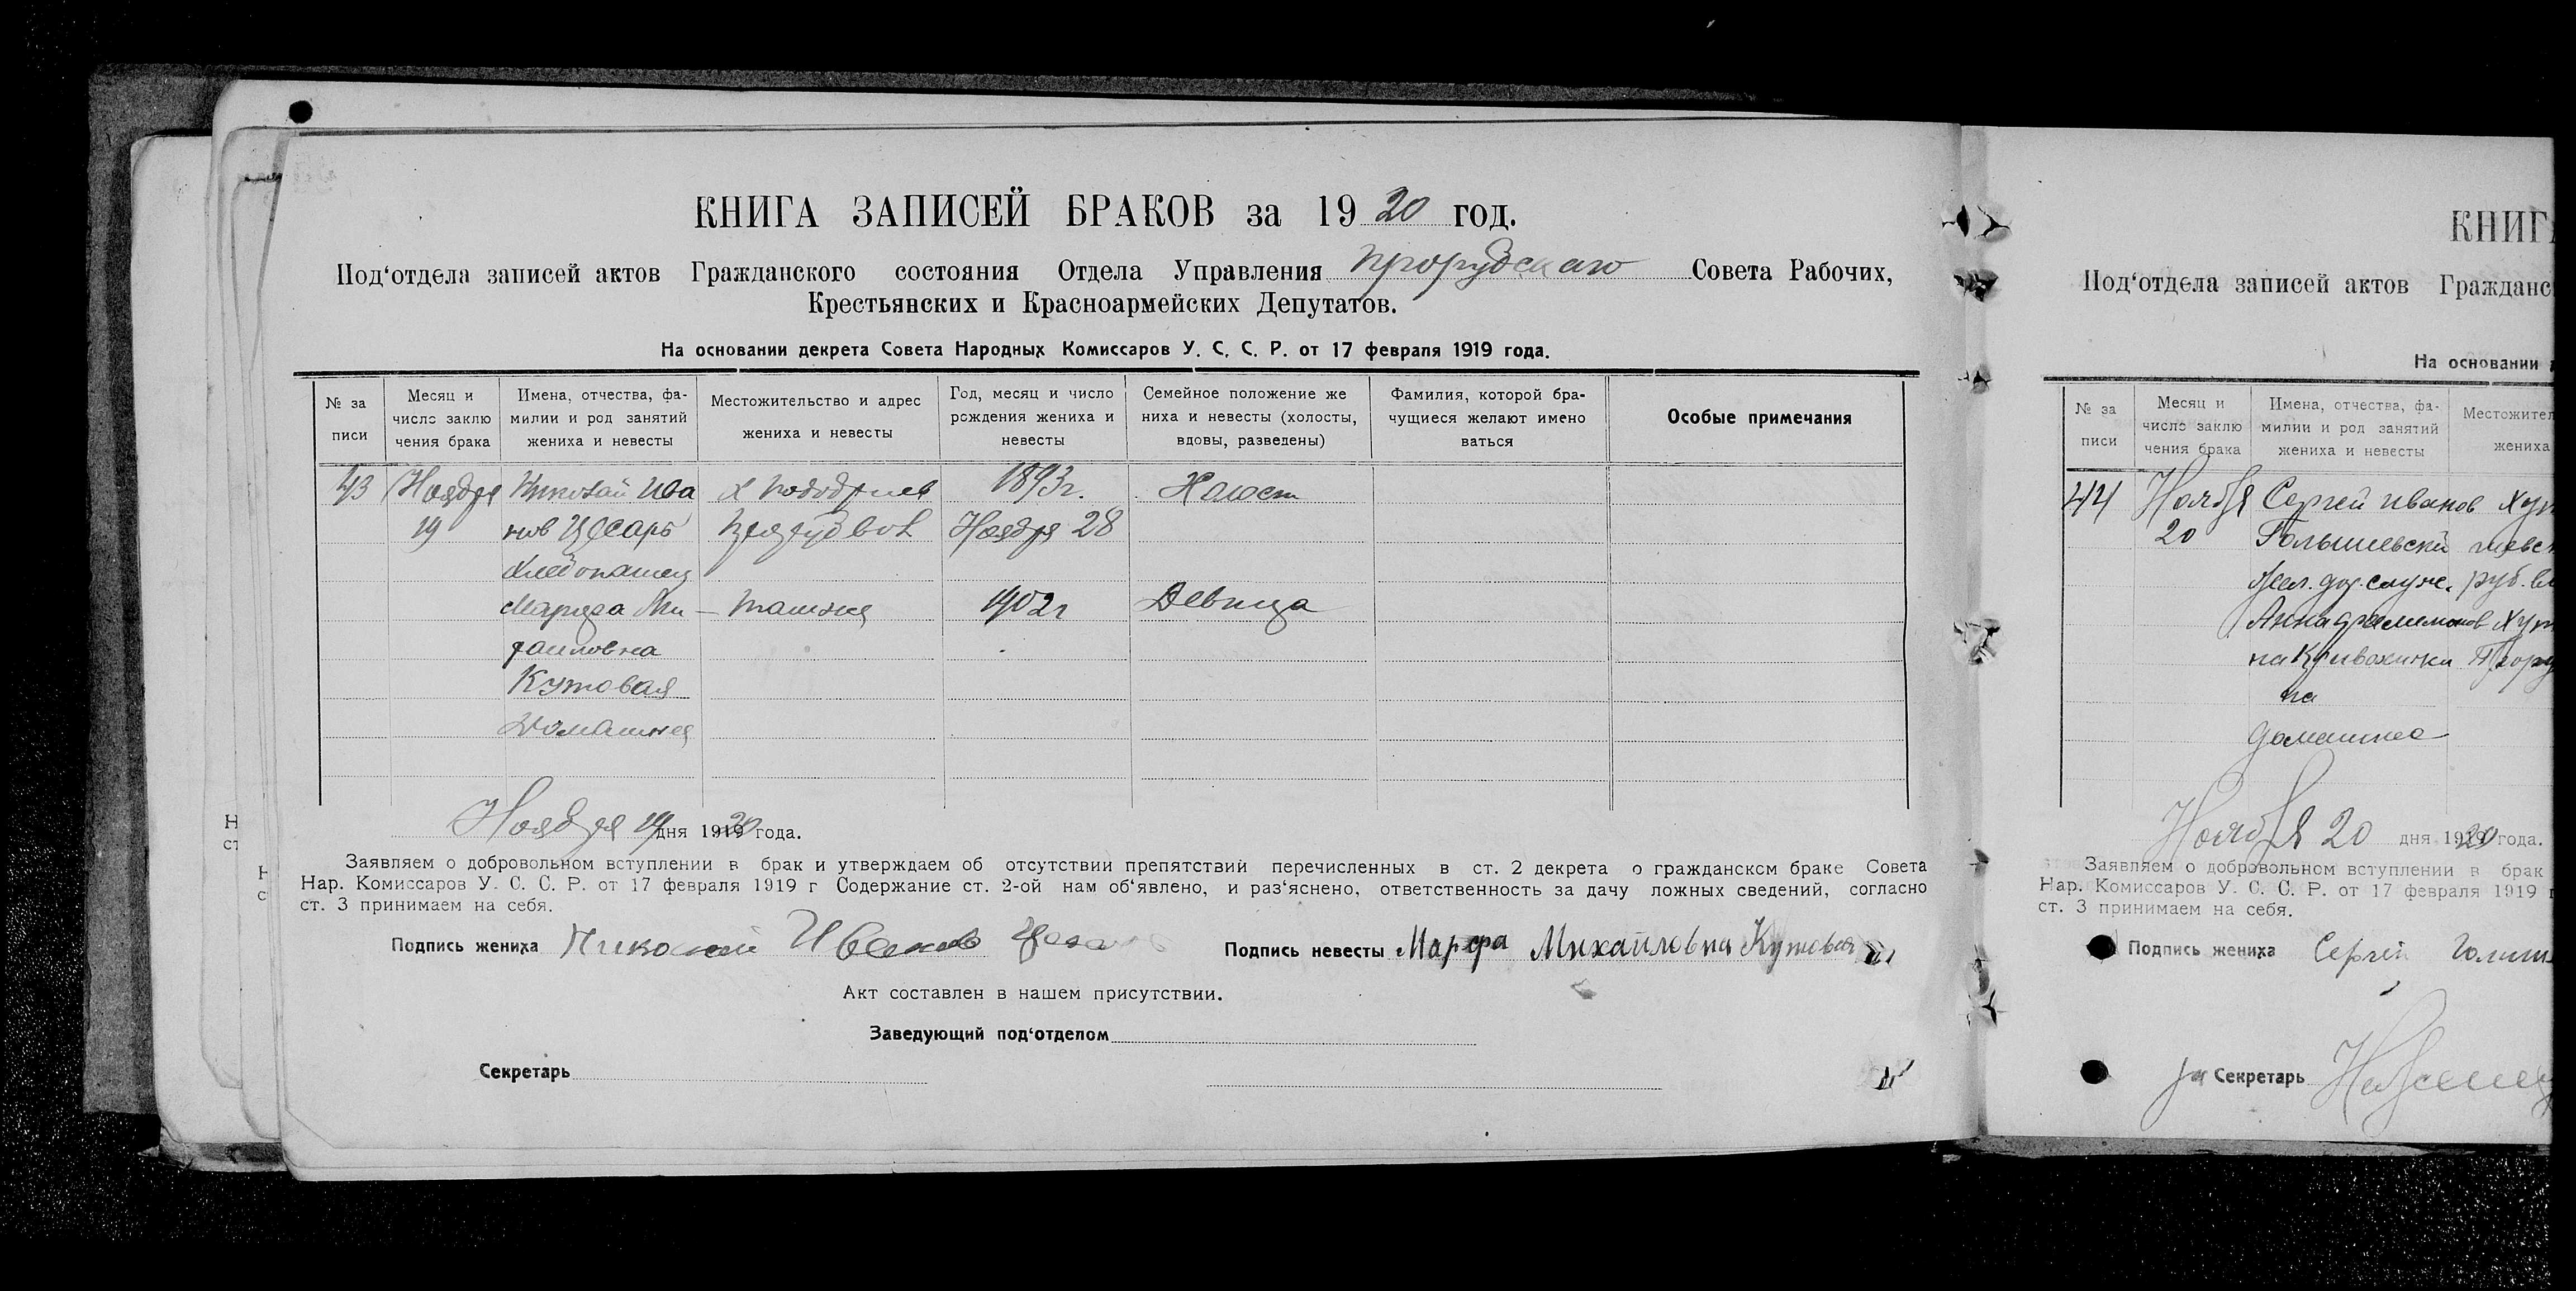 КНИГА ЗАПИСЕЙ БРАКОВ за 1920 год.
Под‘отдела записей актов Гражданского состояния Отдела Управления Прорубского Совета Рабочих,
Крестьянских и Красноармейских Депутатов.
На основании декрета Совета Народных Комиссаров У. С. С. Р. от 17 февраля 1919 года.
№ за писи
Месяц и число заклю чения брака
Имена, отчества, фа- милии и род занятий жениха и невесты
Местожительство и адрес жениха и невесты
Год, месяц и число рождения жениха и невесты
Семейное положение же ниха и невесты (холосты, вдовы, разведены)
Фамилия, которой бра- чущиеся желают имено ваться
Особые примечания
43 Ноября Николай Ива х 1893г. Холост
19 нов Цесарь Ноября 28
хлебопашец
Марфа Ми - 1902г Девица
хаиловна
Кутовая
Домашняя
Ноября 19 дня 1920 года.
Заявляем о добровольном вступлении в брак и утверждаем об отсутствии препятствий перечисленных в ст. 2 декрета о гражданском браке Совета
Нар. Комиссаров У. С. С. Р. от 17 февраля 1919 г Содержание ст. 2-ой нам об‘явлено, и раз‘яснено, ответственность за дачу ложных сведений, согласно
ст. 3 принимаем на себя.
Подпись жениха Николай Иванов Подпись невесты Марфа Михайловна Кутовая
Акт составлен в нашем присутствии.
Заведующий под‘отделом
Секретарь
КНИГ
Под‘отдела записей актов Гражданс
На основании
№ за писи
Месяц и число заклю чения брака
Имена, отчества, фа- милии и род занятий жениха и невесты
Местожител жениха
44 Ноября Сергей Иванов Хут
20
Жел. дор. служ. руб. вл
Анна Хут
на
Домашне
Ноября 20 дня 1920 года.
Заявляем о добровольном вступлении в брак
Нар. Комиссаров У. С. С. Р. от 17 февраля 1919 г
ст. 3 принимаем на себя.
Подпись жениха Сергей
За Секретарь